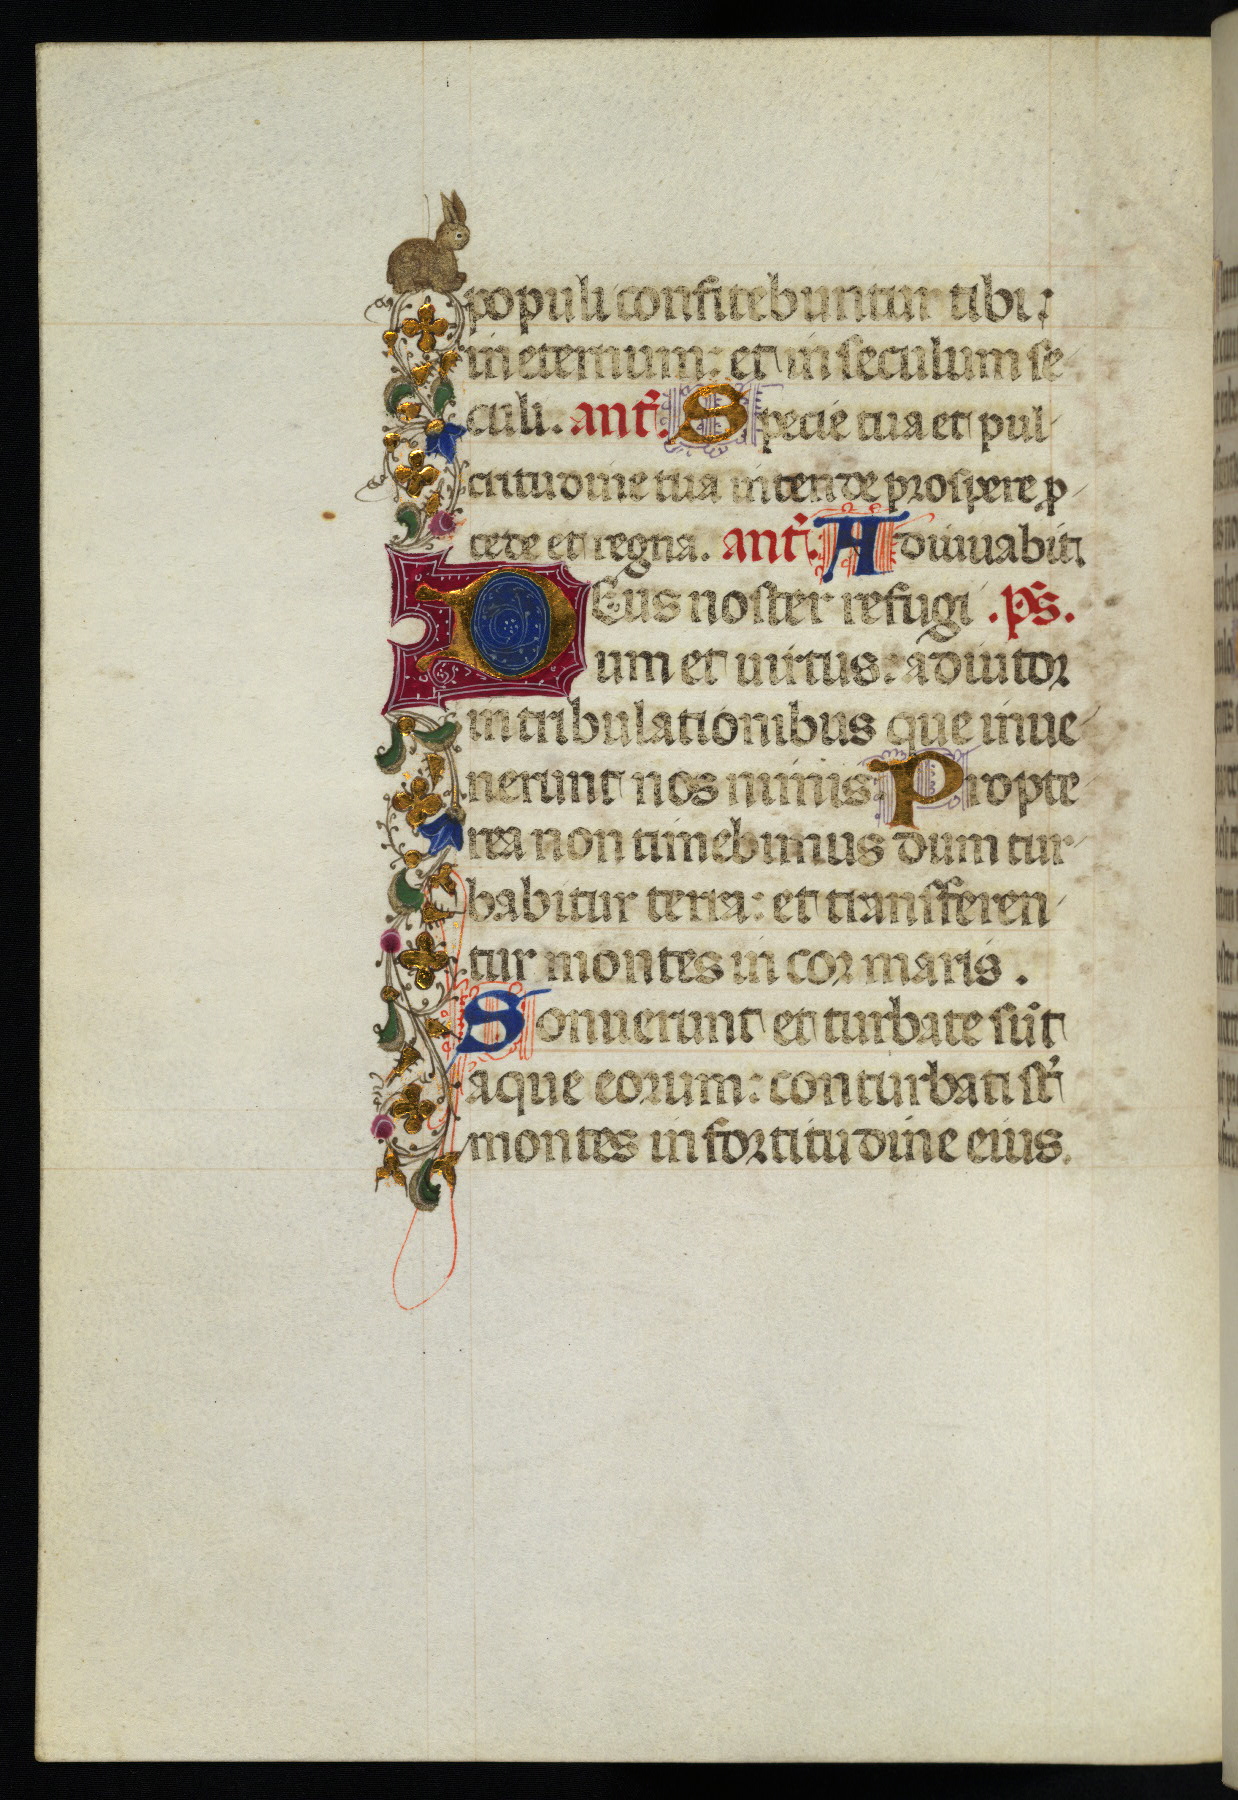 populi confitebuntur tibi:
in eternum: et in seculum se
culi. ant̄. Specie tua et pul
critudine tua intende prospere p
cede et regna. ant̄. Adiuuabit
Deus noster refugi .ps.
um et uirtus: adiutor
in tribulationibus que inue
nerunt nos nimis. Propte
rea non timebimus dum tur
babitur terra: et transferen
tur montes in cor maris.
Sonuerunt et turbate sūt
aque eorum: conturbati st̄
montes in fortitudine eius.